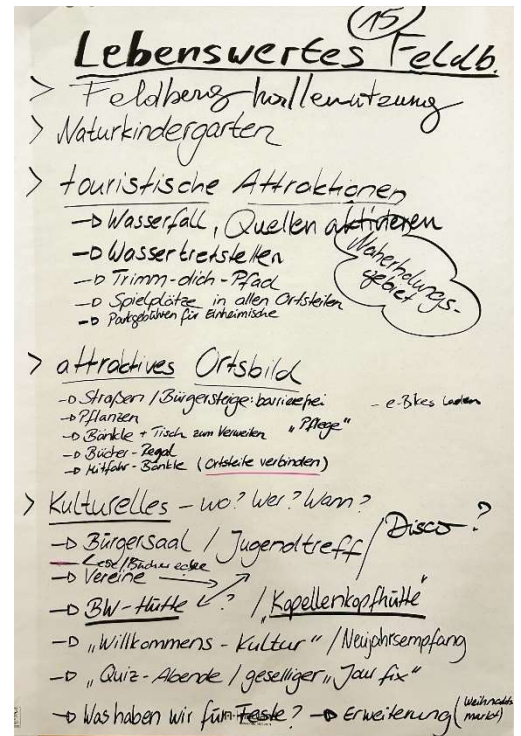 15
Lebenswertes Feldb.
> Feldberghallenutzung
> Naturkindergarten
> touristische Attraktionen
→ Wasserfall, Quellen aktivieren
→ Wassertretstellen
Naherholungs-
gebiet
→ Trimm-dich-Pfad
→ Spielplätze in allen Ortsteilen
→ Parkgebühren für Einheimische
> attraktives Ortsbild
→ Straßen / Bürgersteige: barrierefrei
- e-Bikes laden
→ Pflanzen „Pflege"
→ Bänkle + Tisch zum Verweilen
→ Bücher-Regal
→ Mitfahr-Bänkle (Ortsteile verbinden)
> Kulturelles - wo? Wer? Wann?
→ Bürgersaal / Jugendtreff / Disco?
Lese/Bücherecke
→ Vereine
→ BW-Hütte ? / „Kapellenkopfhütte"
→ „Willkommens-Kultur" / Neujahrsempfang
→ „Quiz-Abende / geselliger „Jour fix"
→ Was haben wir für Feste? → Erweiterung (Weihnachts
markt)